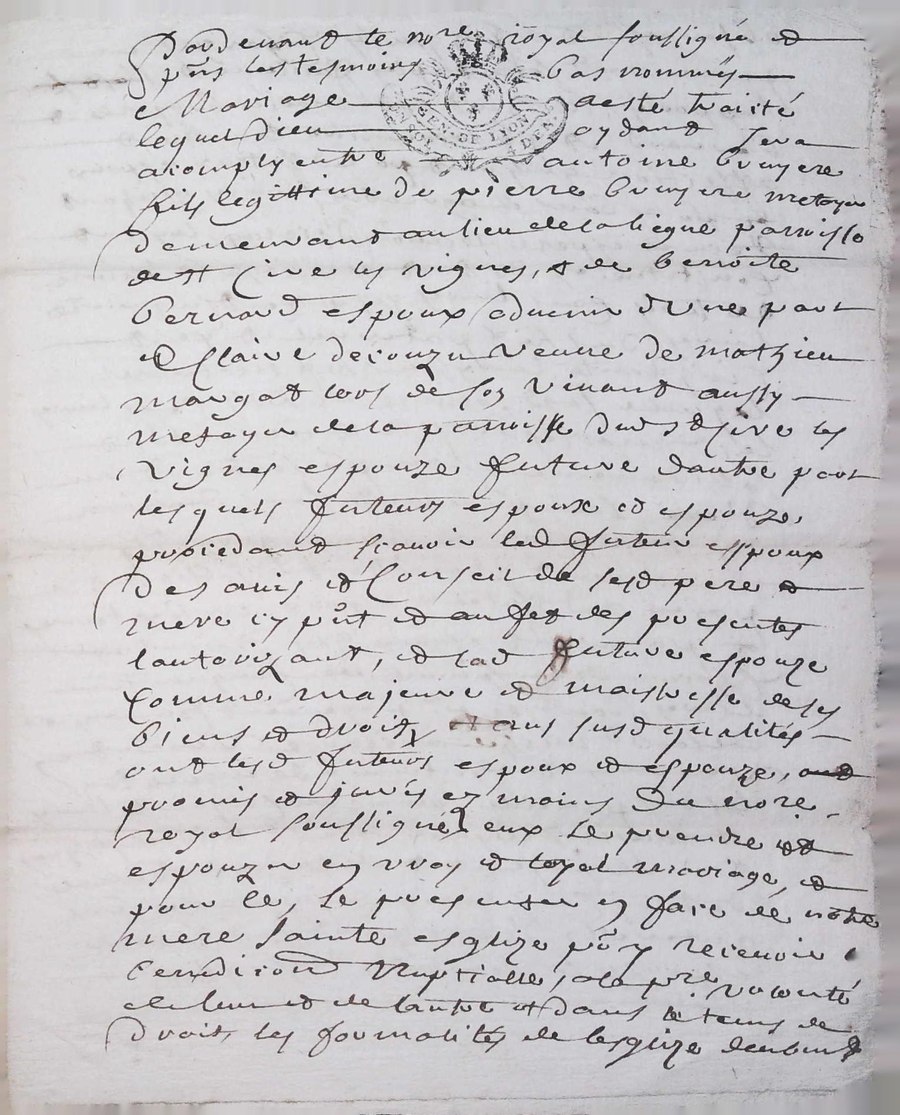 Pardevant le nore royal soussigné et
pnts les tesmoins bas nommés
Mariage a esté traicté
lequel Dieu aydant sera
acomply entre antoine bruyere
fils legittime de pierre bruyere metayer
demeurant au lieu de la parroisse
de st Cire les vignes, et de benoite
bernard espoux advenir d'une part
et Claire decouzu veuve de mathieu
margat lors de son vivant aussy
metayer de la parroisse dud st Cire les
vignes espouze future d'autre part
lesquels futeurs espoux et espouze,
procedant scavoir led futeur espoux
des avis et Conseil de sesd pere et
mere cy pnt et au fet des presentes
l'autorizant, et lad future espouze
Comme majeure et maistresse de ses
biens et droitz aux susd qualités
ont lesd futeurs espoux et espouze,
promis et jurés ez mains du nore
royal soussigné eux se prendre et
espouzer en vray et loyal mariage, et
pour ce, se presenter en face de nostre
mere sainte esglize pr y recevoir
benediction Nuptialle, a la pre volonté
de l'un et de l'autre et dans le tems de
droit les formalités de l'esglize
GEN. DE LYON